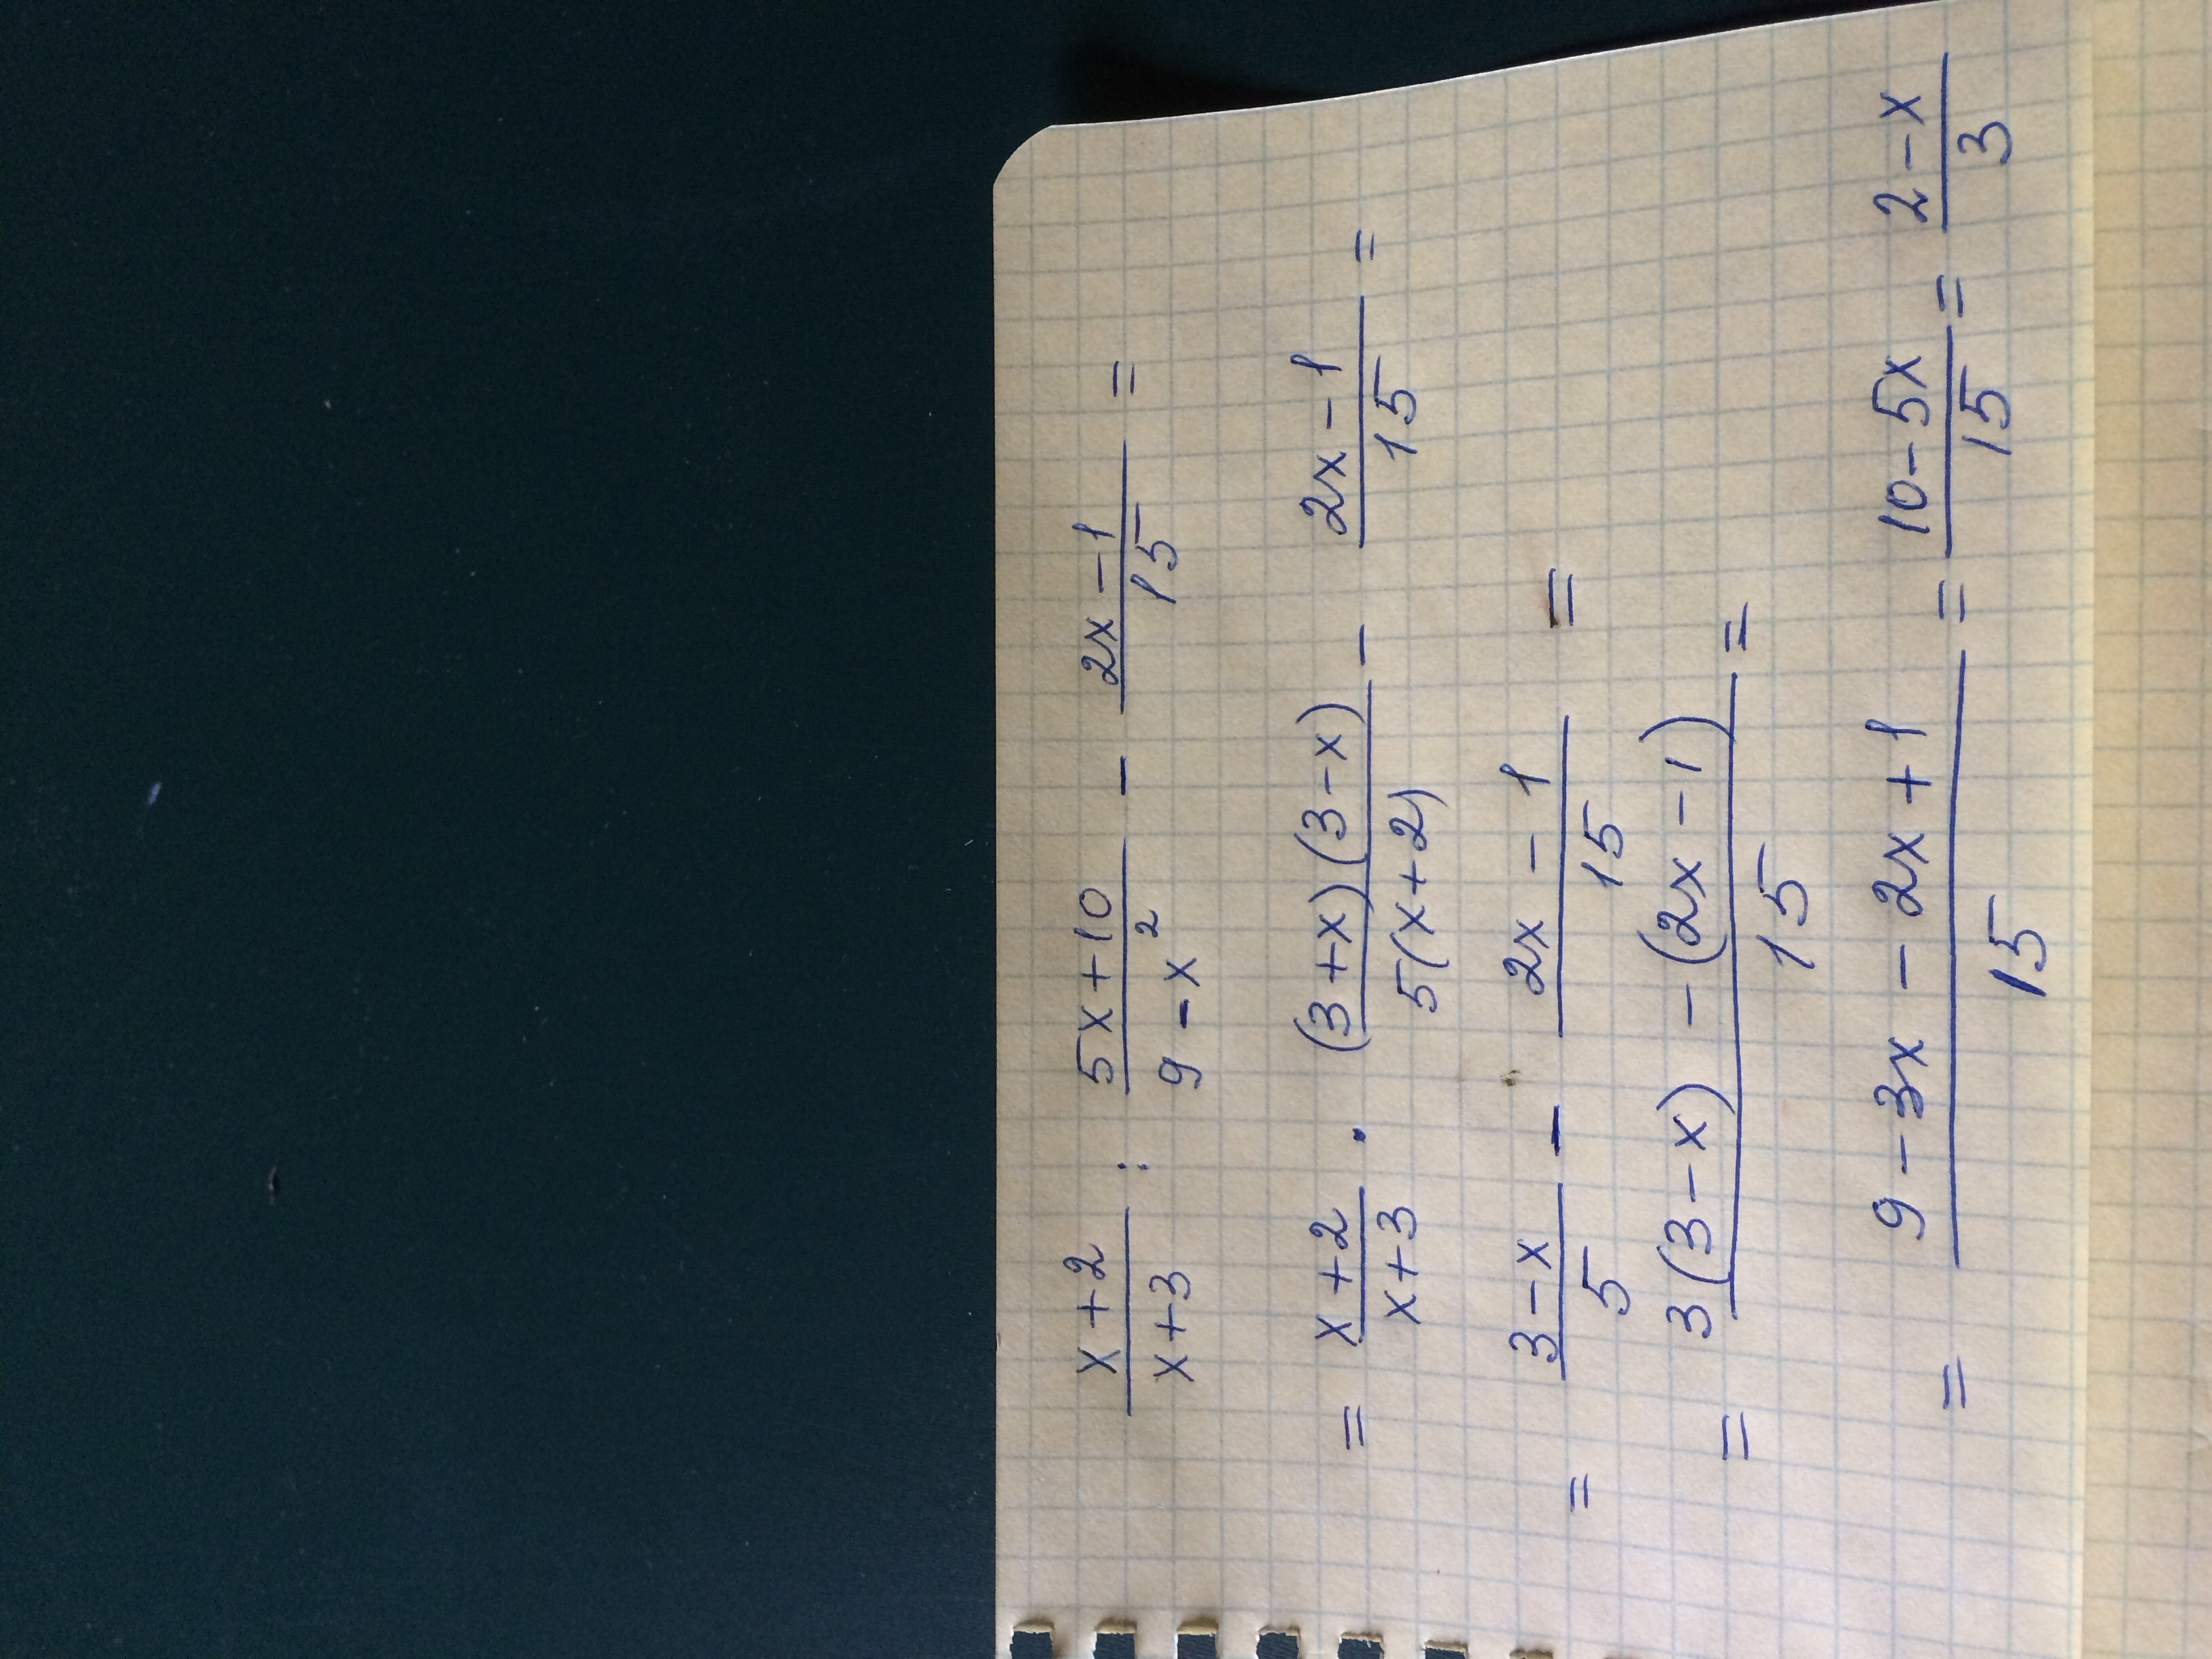 (x+2)/(x+3) : (5x+10)/(9-x²) - (2x-1)/15 =
= (x+2)/(x+3) · ((3+x)(3-x))/(5(x+2)) - (2x-1)/15 =
= (3-x)/5 - (2x-1)/15 =
= (3(3-x) - (2x-1))/15 =
= (9-3x-2x+1)/15 = (10-5x)/15 = (2-x)/3